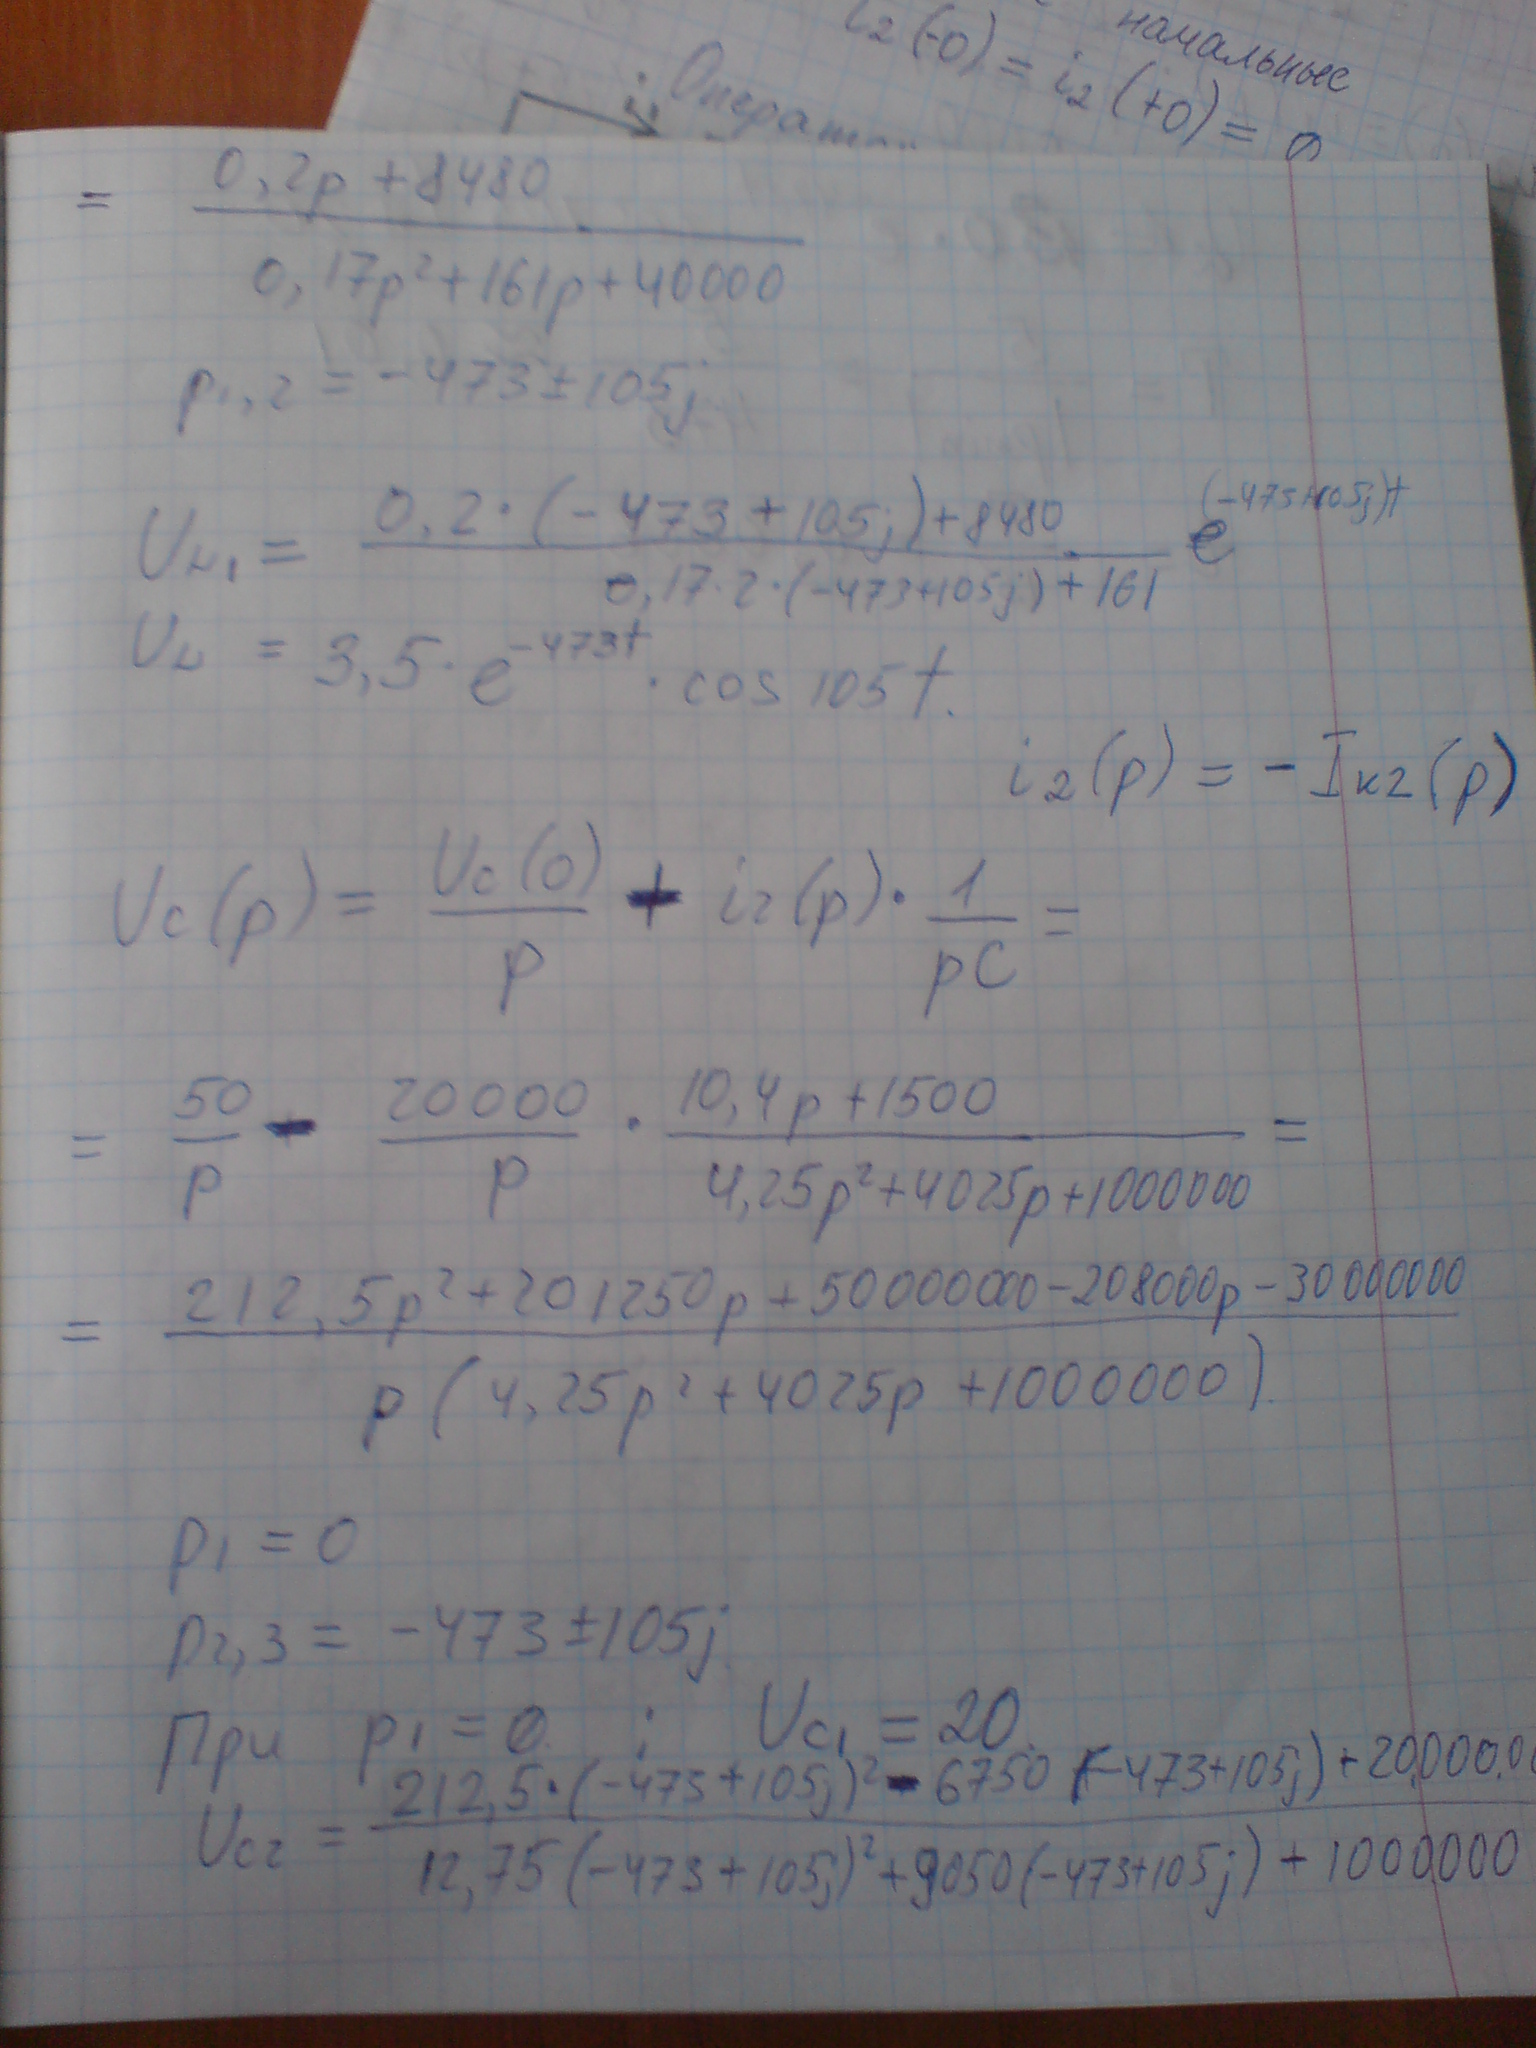 начальные
i₂(-0) = i₂(+0) = 0
i₁
= (0,2p + 8480) / (0,17p² + 161p + 40000)
p₁,₂ = -473 ± 105j
U_L₁ = (0,2·(-473 + 105j) + 8480) / (0,17·2·(-473+105j) + 161) e^((-473+105j)t)
U_L = 3,5·e^(-473t) · cos 105t.
i₂(p) = - Iк₂(p)
Uc(p) = Uc(0)/p + i₂(p) · 1/(pC) =
= 50/p - 20000/p · (10,4p + 1500) / (4,25p² + 4025p + 1000000) =
= (212,5p² + 201250p + 50000000 - 208000p - 30000000) / (p(4,25p² + 4025p + 1000000)).
p₁ = 0
p₂,₃ = -473 ± 105j
При p₁ = 0. ; Uc₁ = 20.
Uc₂ = (212,5·(-473+105j)² - 6750 (-473+105j) + 20.000.00) / (12,75(-473+105j)² + 9050(-473+105j) + 1000000)